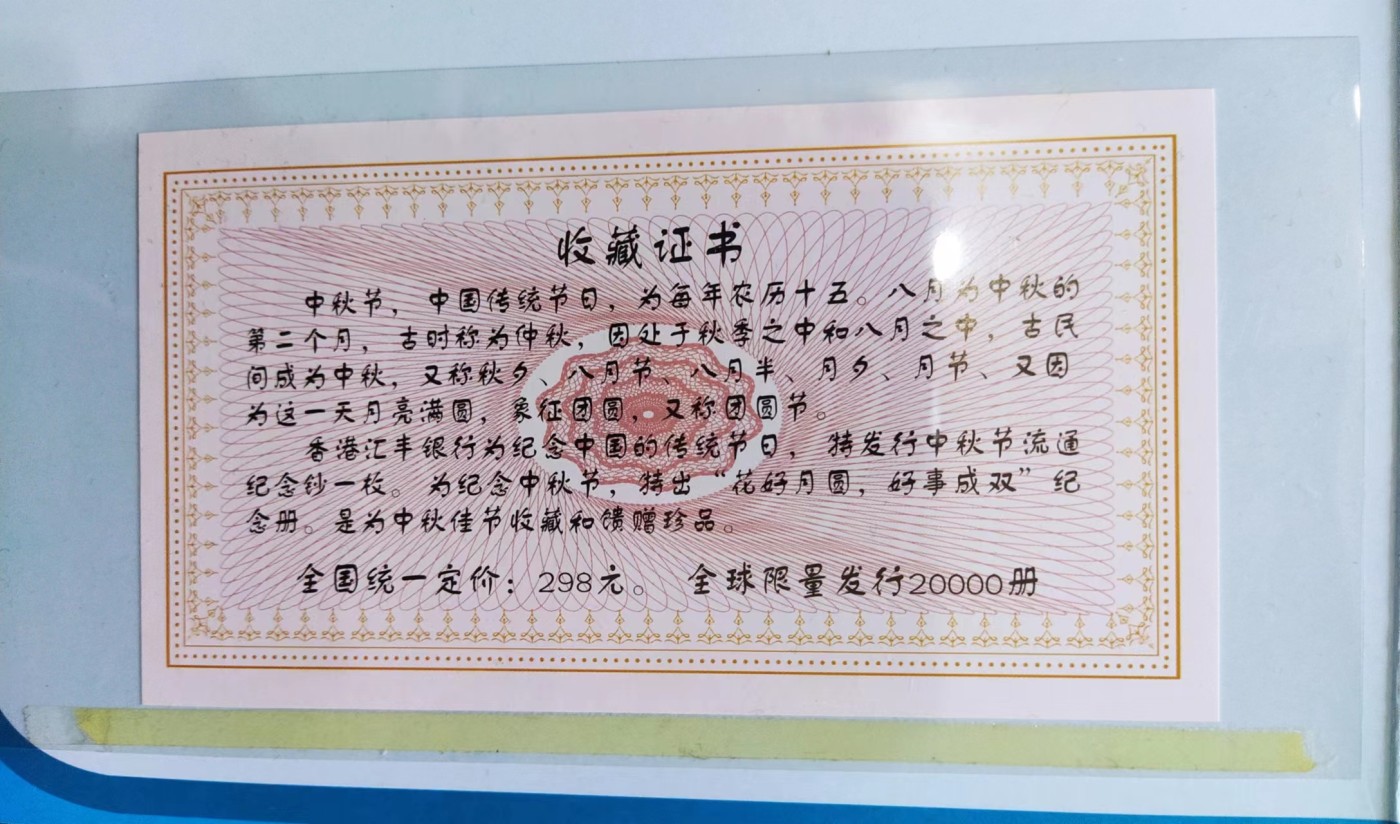 收藏证书
中秋节，中国传统节日，为每年农历十五。八月为中秋的
第二个月，古时称为仲秋，因处于秋季之中和八月之中，古民
间成为中秋，又称秋夕、八月节、八月半、月夕、月节、又因
为这一天月亮满圆，象征团圆，又称团圆节。
香港汇丰银行为纪念中国的传统节日，特发行中秋节流通
纪念钞一枚。为纪念中秋节，特出“花好月圆，好事成双”纪
念册。是为中秋佳节收藏和馈赠珍品。
全国统一定价：298元。 全球限量发行20000册